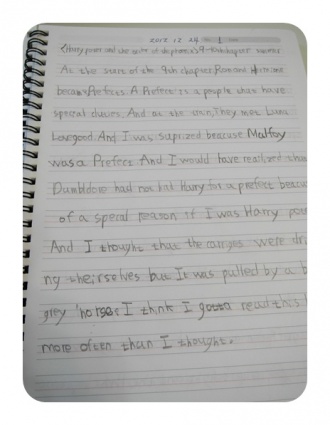 2012 12 24 1
<Harry potter and the order of the phoenix> 9-10th chapter
At the start of the 9th chapter Ron and Hermione
became Prefects. A Prefects is a people that have
special duties. And at the train, They met Luna
Lovegood. And I was suprized because Malfoy
was a Prefect. And I would have realized that
Dumbldore had not let Harry for a prefect
of a speral reason if I was Harry
And I thought that the carrges were
ng theirselves but It was pulled by a
grey horses I think I gotta read this
more often than I thought.